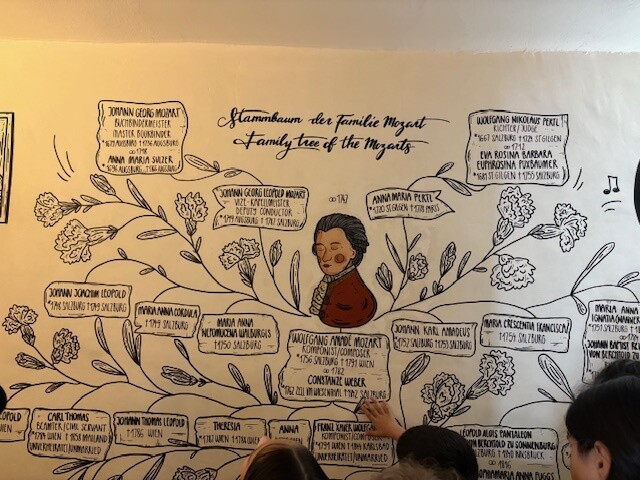 Stammbaum der Familie Mozart
Family tree of the Mozarts
JOHANN GEORG MOZART
BUCHBINDERMEISTER
MASTER BOOKBINDER
*1679 AUGSBURG †1736 AUGSBURG
∞ 1718
ANNA MARIA SULZER
*1696 AUGSBURG, †1766 AUGSBURG
WOLFGANG NIKOLAUS PERTL
RICHTER/JUDGE
*1667 SALZBURG †1724 ST.GILGEN
∞ 1712
EVA ROSINA BARBARA
EUPHROSINA PUXBAUMER
*1681 ST.GILGEN †1755 SALZBURG
JOHANN GEORG LEOPOLD MOZART
VIZE-KAPELLMEISTER
DEPUTY CONDUCTOR
*1719 AUGSBURG †1787 SALZBURG
∞ 1747
ANNA MARIA PERTL
*1720 ST.GILGEN †1778 PARIS
JOHANN JOACHIM LEOPOLD
*1748 SALZBURG †1749 SALZBURG
MARIA ANNA CORDULA
†1749 SALZBURG
MARIA ANNA
NEPOMUCENA WALBURGIS
*1750 SALZBURG
WOLFGANG AMADÉ MOZART
KOMPONIST/COMPOSER
*1756 SALZBURG †1791 WIEN
∞ 1782
CONSTANZE WEBER
*1762 ZELL IM WIESENTHAL †1842 SALZBURG
JOHANN KARL AMADEUS
*1752 SALZBURG †1753 SALZBURG
MARIA CRESCENTIA FRANCISCA
†1754 SALZBURG
MARIA ANNA
IGNATIA
*1751 SALZBURG
JOHANN BAPTIST
VON BERCHTOLD
LEOPOLD
WIEN
CARL THOMAS
BEAMTER/CIVIL SERVANT
*1784 WIEN †1858 MAILAND
UNVERHEIRATET/UNMARRIED
JOHANN THOMAS LEOPOLD
†1786 WIEN
THERESIA
*1787 WIEN †1788 WIEN
ANNA
FRANZ XAVER
KOMPONIST
*1791 WIEN †1844 KARLSBAD
UNVERHEIRATET/UNMARRIED
LEOPOLD ALOIS PANTALEON
BERCHTOLD ZU SONNENBURG
SALZBURG †1840 INNSBRUCK
∞ 1816
JOSEPHA MARIA ANNA FUGGS